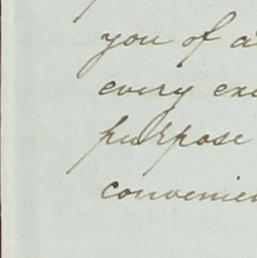 you of a
every ex
purpose
convenien